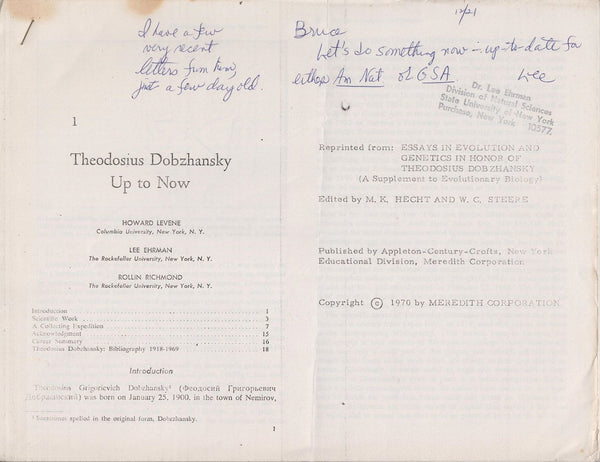 I have a few
very recent
letters from him,
just a few day old.
1
Theodosius Dobzhansky
Up to Now
HOWARD LEVENE
Columbia University, New York, N. Y.
LEE EHRMAN
The Rockefeller University, New York, N. Y.
ROLLIN RICHMOND
The Rockefeller University, New York, N. Y.
Introduction 1
Scientific Work 3
A Collecting Expedition 7
Acknowledgment 15
Career Summary 16
Theodosius Dobzhansky: Bibliography 1918-1969 18
Introduction
Theodosius Grigorievich Dobzhansky¹ (Феодосий Григорьевич
Добржанский) was born on January 25, 1900, in the town of Nemirov,
¹ Sometimes spelled in the original form, Dobrzhansky.
1
12/21
Bruce
Let's do something now – up-to-date for
either Am Nat or GSA. Lee
Dr. Lee Ehrman
Division of Natural Sciences
State University of New York
Purchase, New York 10577
Reprinted from: ESSAYS IN EVOLUTION AND
GENETICS IN HONOR OF
THEODOSIUS DOBZHANSKY
(A Supplement to Evolutionary Biology)
Edited by M. K. HECHT AND W. C. STEERE
Published by Appleton-Century-Crofts, New York
Educational Division, Meredith Corporation
Copyright © 1970 by MEREDITH CORPORATION